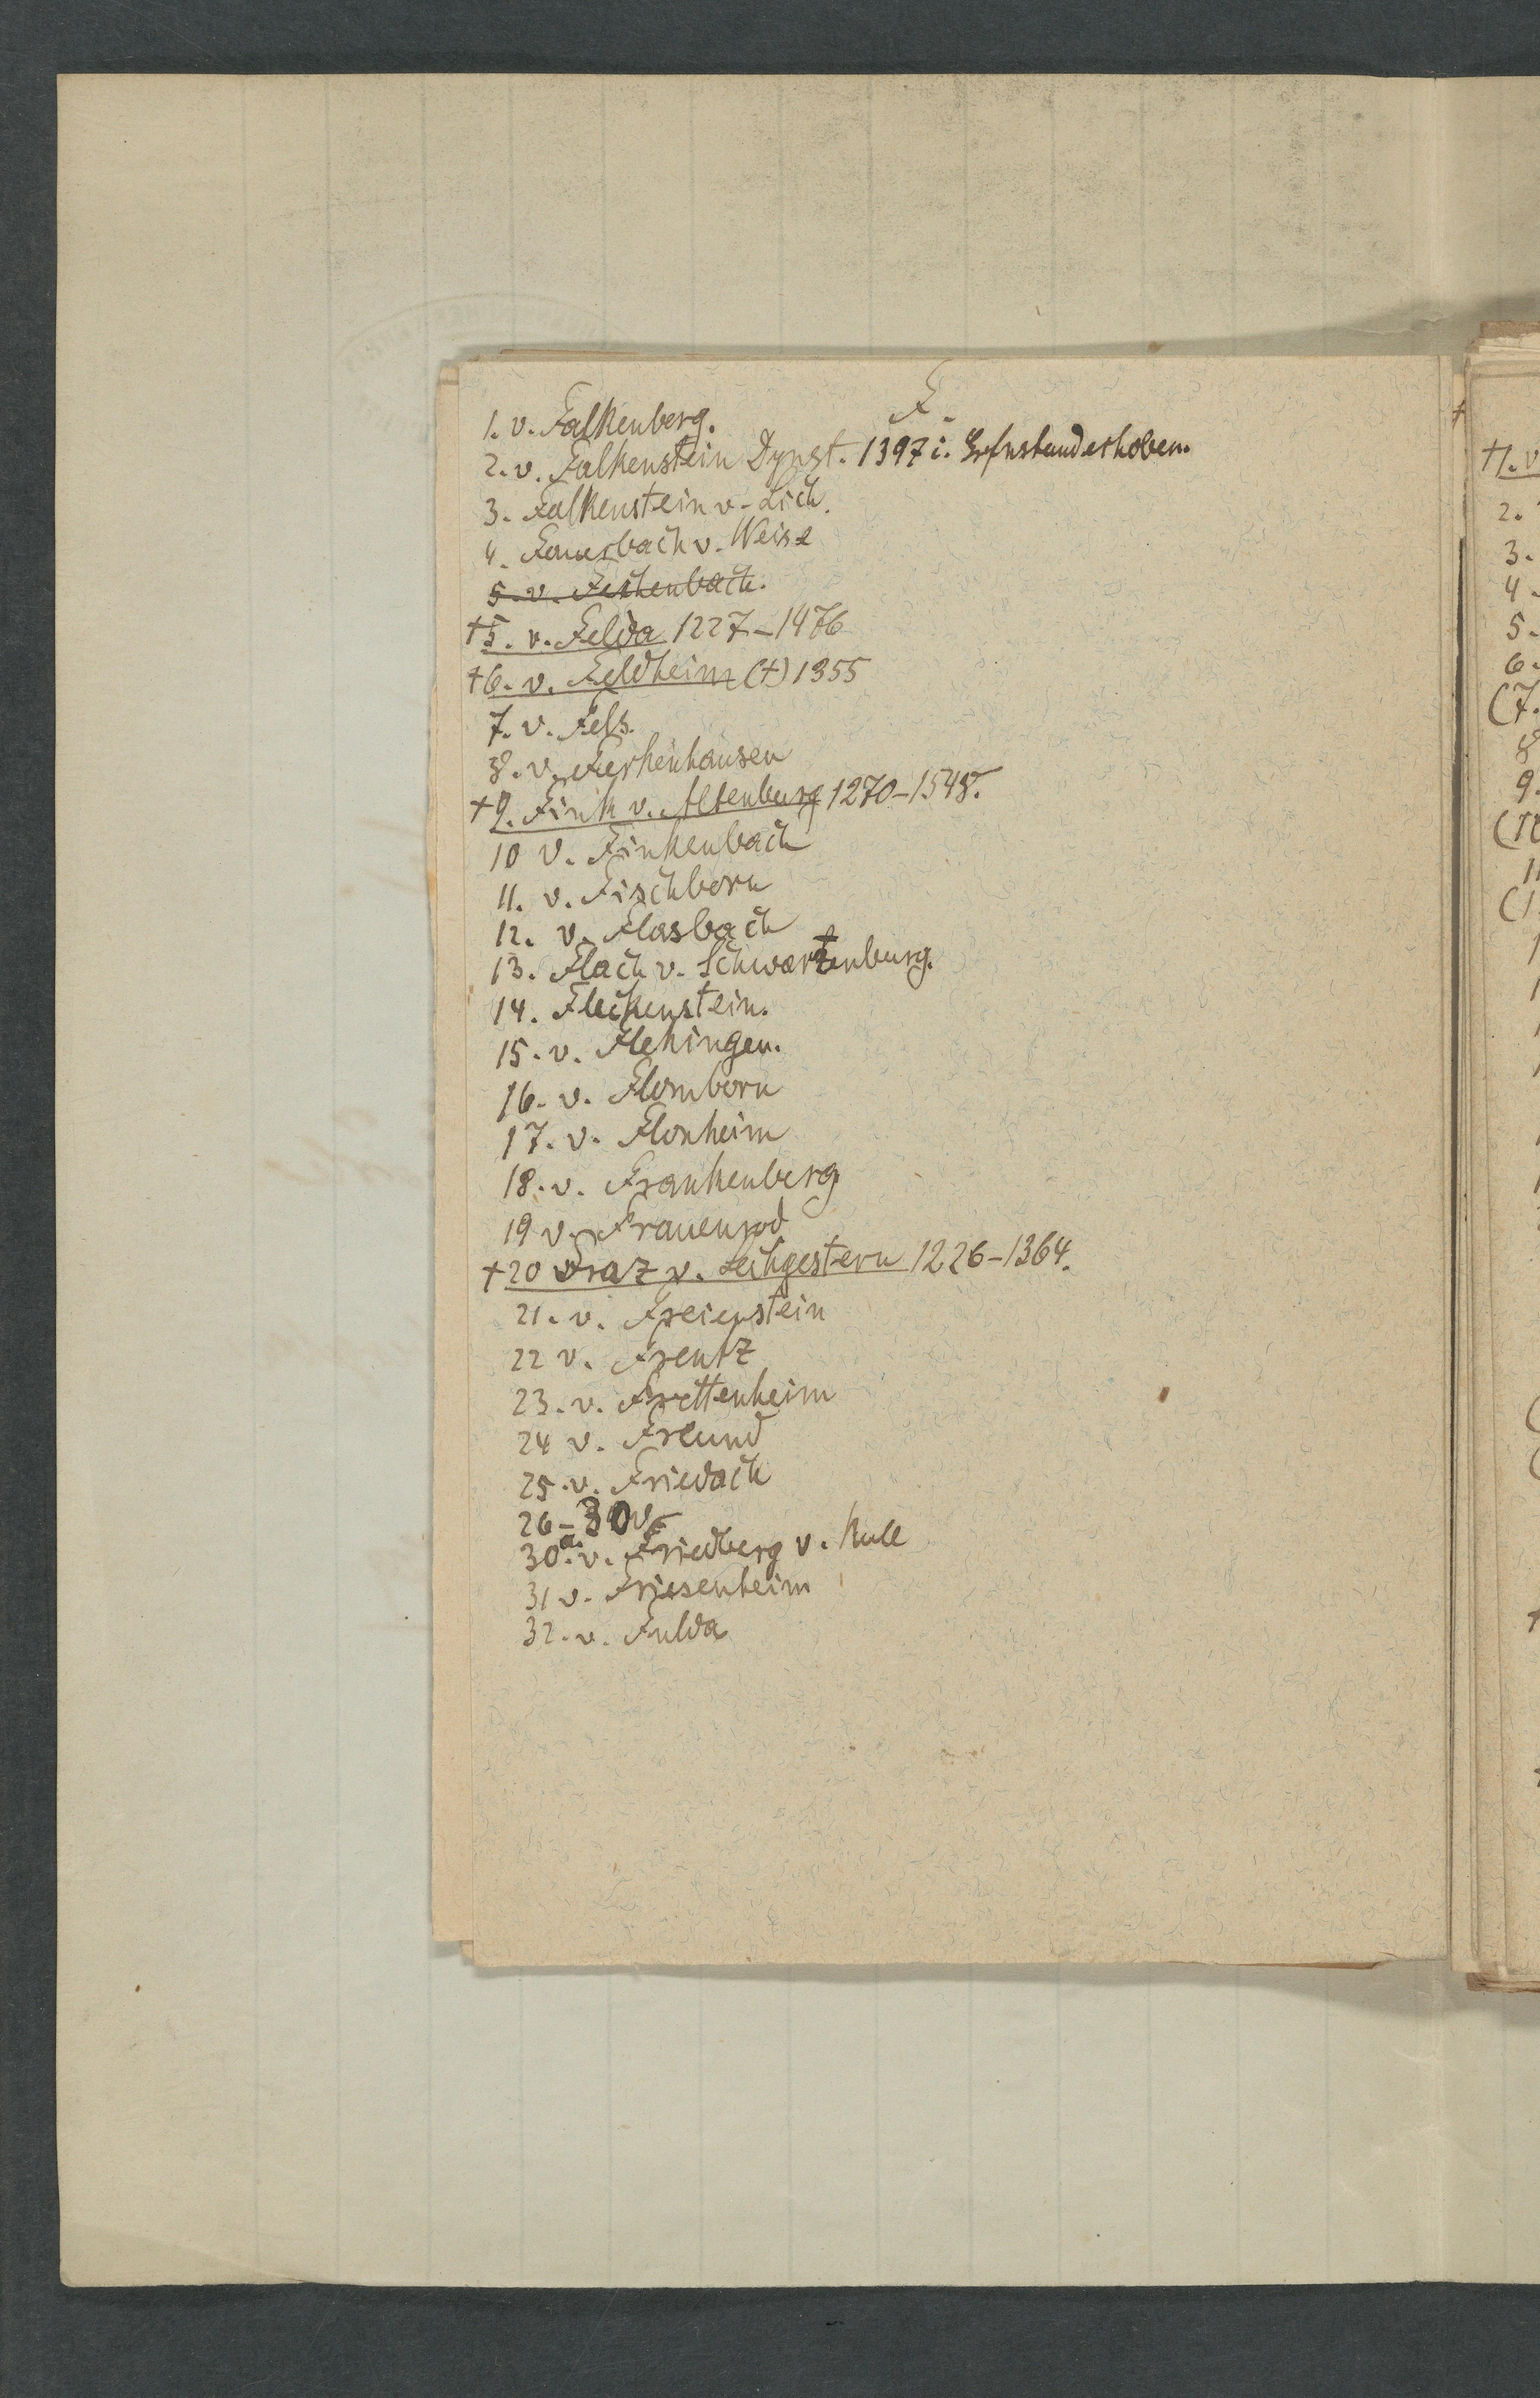 F.
1. v. Falkenberg.
2. v. Falkenstein Dynst. 1397 i. Grfnstand erhoben.
3. Falkenstein v. Lich.
4. Fauerbach v. Weise
5. v. Fechenbach.
†5. v. Felda 1227–1476
†6. v. Feldheim (†) 1355
7. v. Fels.
8. v. Ferkenhausen
†9. Fink v. Altenburg 1270–1548.
10 v. Finkenbach
11. v. Fischborn
12. v. Flasbach
13. Flach v. Schwartzenburg.
14. Fleckenstein.
15. v. Flehingen.
16. v. Flomborn
17. v. Flonheim
18. v. Frankenberg
19 v. Frauenrod
†20 Fraz v. Leihgestern 1226–1364.
21. v. Freienstein
22 v. Frentz
23. v. Frettenheim
24 v. Freund
25. v. Friedach
26–30 v.
30a. v. Friedberg v.
31 v. Friesenheim
32. v. Fulda
†1. v
2.
3.
4.
5.
6.
(7.
8
9.
11